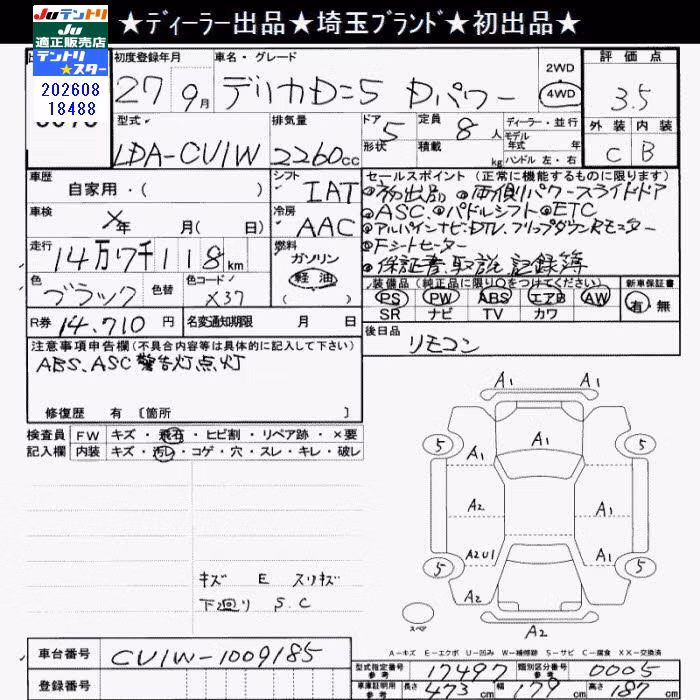 ★ディーラー出品★埼玉ブランド★初出品★
Juテントリ
Ju
適正販売店
テントリ
★スター
202608
18488
初度登録年月
27年 9月
車名・グレード
デリカD=5 Dパワー
2WD
4WD
評価点
3.5
外装 内装
C B
型式
LDA-CV1W
排気量
2260cc
ドア 5
形状
定員 8人
積載 kg
ディーラー・並行
モデル
年式 年
ハンドル 左・右
車歴
自家用・( )
シフト
IAT
車検
X年 月( 日)
冷房
AAC
走行
14万7千118km
燃料
ガソリン
軽油
( )
色
ブラック
色替
色コード
X37
R券 14,710円
名変通知期限 月 日
セールスポイント(正常に機能するものに限ります)
●初出品 ●両側パワースライドドア
●ASC.●パドルシフト●ETC
●アルパインナビ.DTV.フリップダウンRモニター
●Fシートヒーター
●保証書.取説.記録簿
装備品(純正品に限り○をつけてください)
PS PW ABS エアB AW
SR ナビ TV カワ
新車保証書
有・無
後日品
リモコン
注意事項申告欄(不具合内容等は具体的に記入して下さい)
ABS、ASC警告灯点灯
修復歴 有〔箇所 〕
検査員
記入欄
FW キズ・飛石・ヒビ割・リペア跡・×要
内装 キズ・汚レ・コゲ・穴・スレ・キレ・破レ
キズ E スリキズ
下廻り S.C
A1 A1
5 A1 5
A1 A1
A2
A2U1 A1
5 5
A2 A1
A2
スペア
A-キズ E-エクボ U-凹み W-補修跡 S-サビ C-腐食 XX-交換済
車台番号
CV1W-1009185
登録番号
型式指定番号
参考
17497
類別区分番号
参考
0005
車庫証明用
参考
長さ 473cm 幅 179cm 高さ 187cm